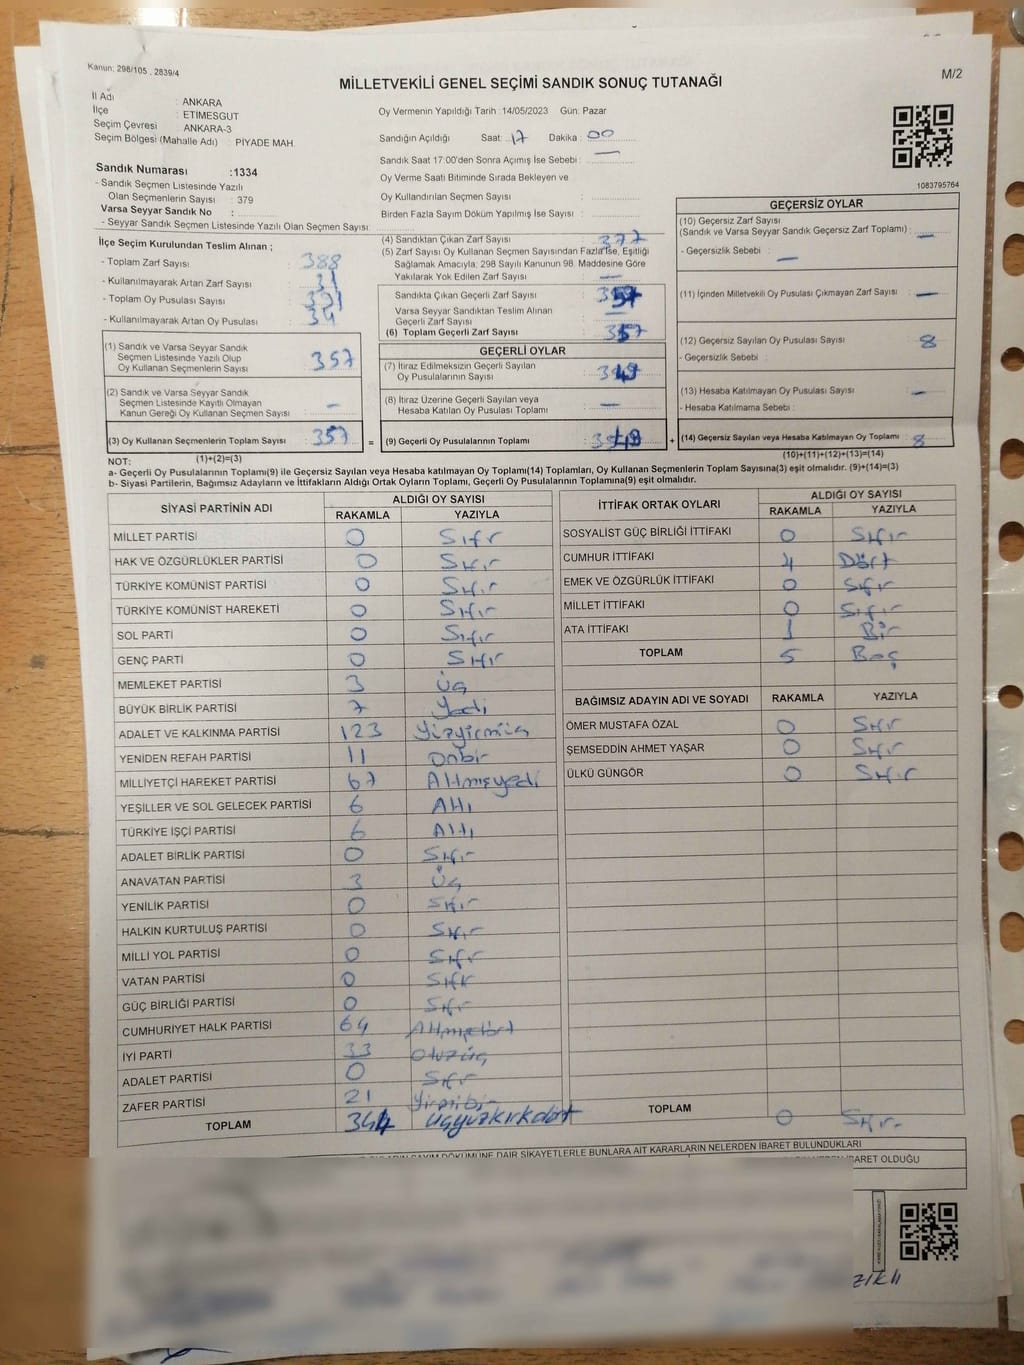 Kanun: 298/105 , 2839/4
MİLLETVEKİLİ GENEL SEÇİMİ SANDIK SONUÇ TUTANAĞI
M/2
İl Adı : ANKARA
İlçe : ETİMESGUT
Seçim Çevresi : ANKARA-3
Seçim Bölgesi (Mahalle Adı) : PİYADE MAH.
Oy Vermenin Yapıldığı Tarih :14/05/2023 Gün: Pazar
Sandığın Açıldığı Saat: 17 Dakika: 00
Sandık Saat 17:00'den Sonra Açımış İse Sebebi : —
Oy Verme Saati Bitiminde Sırada Bekleyen ve
Oy Kullandırılan Seçmen Sayısı :
Birden Fazla Sayım Döküm Yapılmış İse Sayısı :
1083795764
Sandık Numarası :1334
- Sandık Seçmen Listesinde Yazılı
Olan Seçmenlerin Sayısı : 379
Varsa Seyyar Sandık No :
- Seyyar Sandık Seçmen Listesinde Yazılı Olan Seçmen Sayısı:
İlçe Seçim Kurulundan Teslim Alınan ;
- Toplam Zarf Sayısı : 388
- Kullanılmayarak Artan Zarf Sayısı : 31
- Toplam Oy Pusulası Sayısı :
- Kullanılmayarak Artan Oy Pusulası : 34
(1) Sandık ve Varsa Seyyar Sandık
Seçmen Listesinde Yazılı Olup
Oy Kullanan Seçmenlerin Sayısı : 357
(2) Sandık ve Varsa Seyyar Sandık
Seçmen Listesinde Kayıtlı Olmayan
Kanun Gereği Oy Kullanan Seçmen Sayısı : —
(3) Oy Kullanan Seçmenlerin Toplam Sayısı : 357 =
(1)+(2)=(3)
(4) Sandıktan Çıkan Zarf Sayısı : 377
(5) Zarf Sayısı Oy Kullanan Seçmen Sayısından Fazla İse, Eşitliği
Sağlamak Amacıyla; 298 Sayılı Kanunun 98. Maddesine Göre
Yakılarak Yok Edilen Zarf Sayısı : —
Sandıkta Çıkan Geçerli Zarf Sayısı : 357
Varsa Seyyar Sandıktan Teslim Alınan
Geçerli Zarf Sayısı : —
(6) Toplam Geçerli Zarf Sayısı : 357
GEÇERLİ OYLAR
(7) İtiraz Edilmeksizin Geçerli Sayılan
Oy Pusulalarının Sayısı : 349
(8) İtiraz Üzerine Geçerli Sayılan veya
Hesaba Katılan Oy Pusulası Toplamı : —
(9) Geçerli Oy Pusulalarının Toplamı : +
GEÇERSİZ OYLAR
(10) Geçersiz Zarf Sayısı
(Sandık ve Varsa Seyyar Sandık Geçersiz Zarf Toplamı) : —
- Geçersizlik Sebebi : —
(11) İçinden Milletvekili Oy Pusulası Çıkmayan Zarf Sayısı : —
(12) Geçersiz Sayılan Oy Pusulası Sayısı : 8
- Geçersizlik Sebebi :
(13) Hesaba Katılmayan Oy Pusulası Sayısı : —
- Hesaba Katılmama Sebebi :
(14) Geçersiz Sayılan veya Hesaba Katılmayan Oy Toplamı : 8
(10)+(11)+(12)+(13)=(14)
NOT:
a- Geçerli Oy Pusulalarının Toplamı(9) ile Geçersiz Sayılan veya Hesaba katılmayan Oy Toplamı(14) Toplamları, Oy Kullanan Seçmenlerin Toplam Sayısına(3) eşit olmalıdır. (9)+(14)=(3)
b- Siyasi Partilerin, Bağımsız Adayların ve İttifakların Aldığı Ortak Oyların Toplamı, Geçerli Oy Pusulalarının Toplamına(9) eşit olmalıdır.
SİYASİ PARTİNİN ADI ALDIĞI OY SAYISI
RAKAMLA YAZIYLA
MİLLET PARTİSİ 0 Sıfır
HAK VE ÖZGÜRLÜKLER PARTİSİ 0 Sıfır
TÜRKİYE KOMÜNİST PARTİSİ 0 Sıfır
TÜRKİYE KOMÜNİST HAREKETİ 0 Sıfır
SOL PARTİ 0 Sıfır
GENÇ PARTİ 0 Sıfır
MEMLEKET PARTİSİ 3 Üç
BÜYÜK BİRLİK PARTİSİ 7 Yedi
ADALET VE KALKINMA PARTİSİ 123 Yüzyirmiüç
YENİDEN REFAH PARTİSİ 11 Onbir
MİLLİYETÇİ HAREKET PARTİSİ 67 Altmışyedi
YEŞİLLER VE SOL GELECEK PARTİSİ 6 Altı
TÜRKİYE İŞÇİ PARTİSİ 6 Altı
ADALET BİRLİK PARTİSİ 0 Sıfır
ANAVATAN PARTİSİ 3 Üç
YENİLİK PARTİSİ 0 Sıfır
HALKIN KURTULUŞ PARTİSİ 0 Sıfır
MİLLİ YOL PARTİSİ 0 Sıfır
VATAN PARTİSİ 0 Sıfır
GÜÇ BİRLİĞİ PARTİSİ 0 Sıfır
CUMHURİYET HALK PARTİSİ 64 Altmışdört
İYİ PARTİ 33 Otuzüç
ADALET PARTİSİ 0 Sıfır
ZAFER PARTİSİ 21 Yirmibir
TOPLAM 344 Üçyüzkırkdört
İTTİFAK ORTAK OYLARI ALDIĞI OY SAYISI
RAKAMLA YAZIYLA
SOSYALİST GÜÇ BİRLİĞİ İTTİFAKI 0 Sıfır
CUMHUR İTTİFAKI 4 Dört
EMEK VE ÖZGÜRLÜK İTTİFAKI 0 Sıfır
MİLLET İTTİFAKI 0 Sıfır
ATA İTTİFAKI 1 Bir
TOPLAM 5 Beş
BAĞIMSIZ ADAYIN ADI VE SOYADI RAKAMLA YAZIYLA
ÖMER MUSTAFA ÖZAL 0 Sıfır
ŞEMSEDDİN AHMET YAŞAR 0 Sıfır
ÜLKÜ GÜNGÖR 0 Sıfır
TOPLAM 0 Sıfır
SAYIM DÖKÜMÜNE DAİR ŞİKAYETLERLE BUNLARA AİT KARARLARIN NELERDEN İBARET BULUNDUKLARI
İBARET OLDUĞU